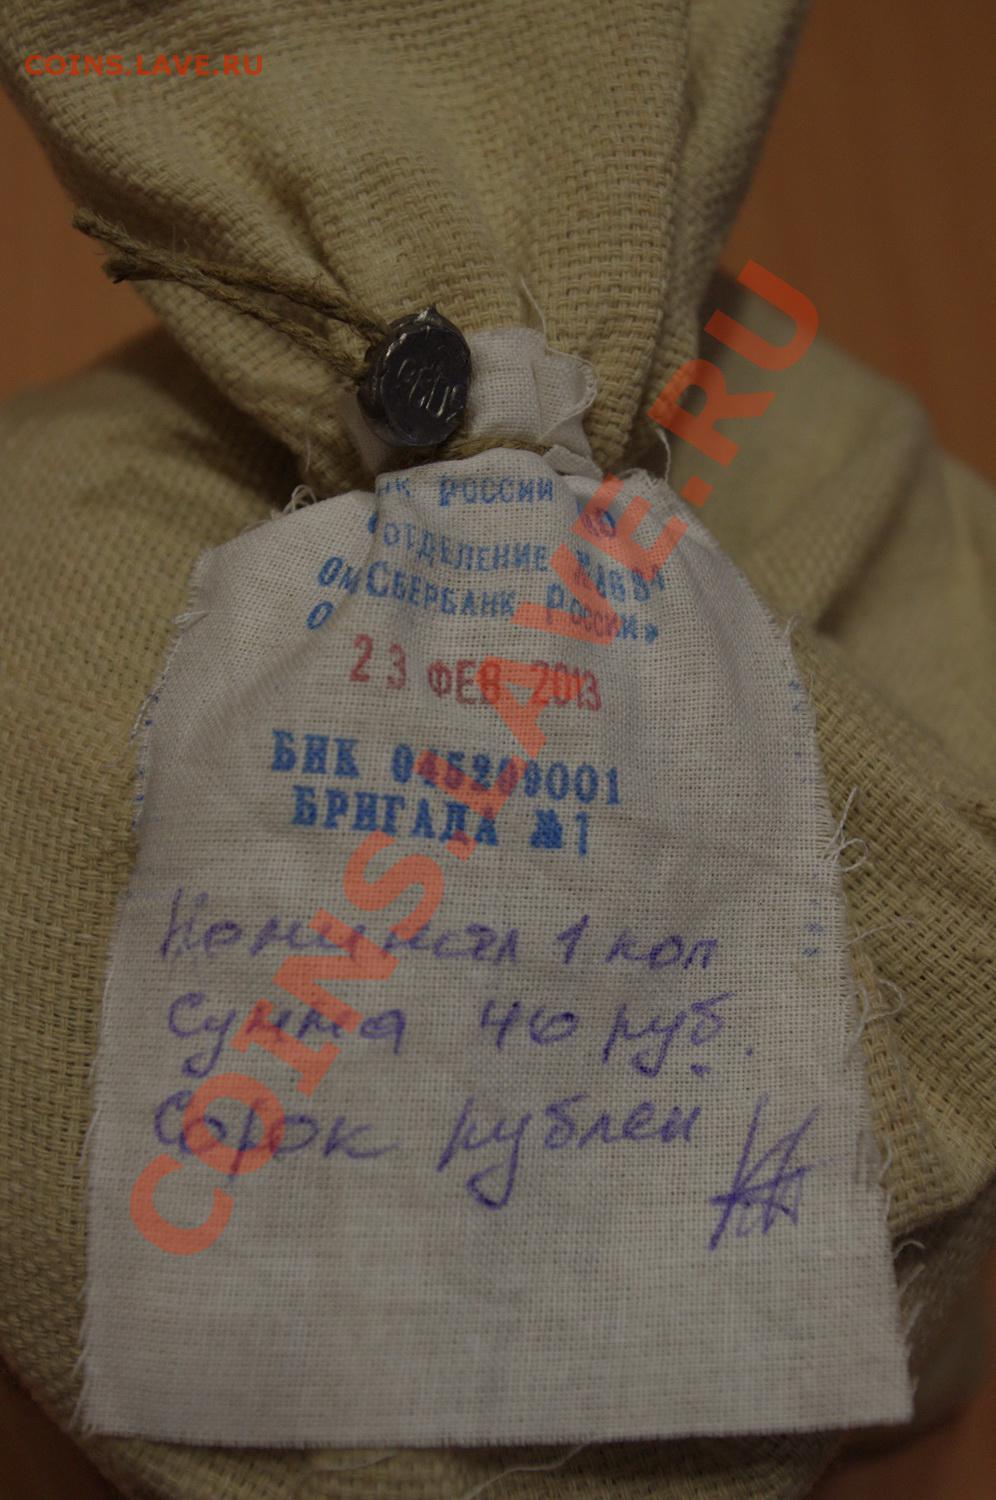 COINS.LAVE.RU
НК РОССИИ
ОТДЕЛЕНИЕ №1634
СБЕРБАНК РОССИИ»
23 ФЕВ 2013
БИК 045209001
БРИГАДА №1
Номинал 1 коп
Сумма 40 руб.
Сорок рублей
COINS.LAVE.RU